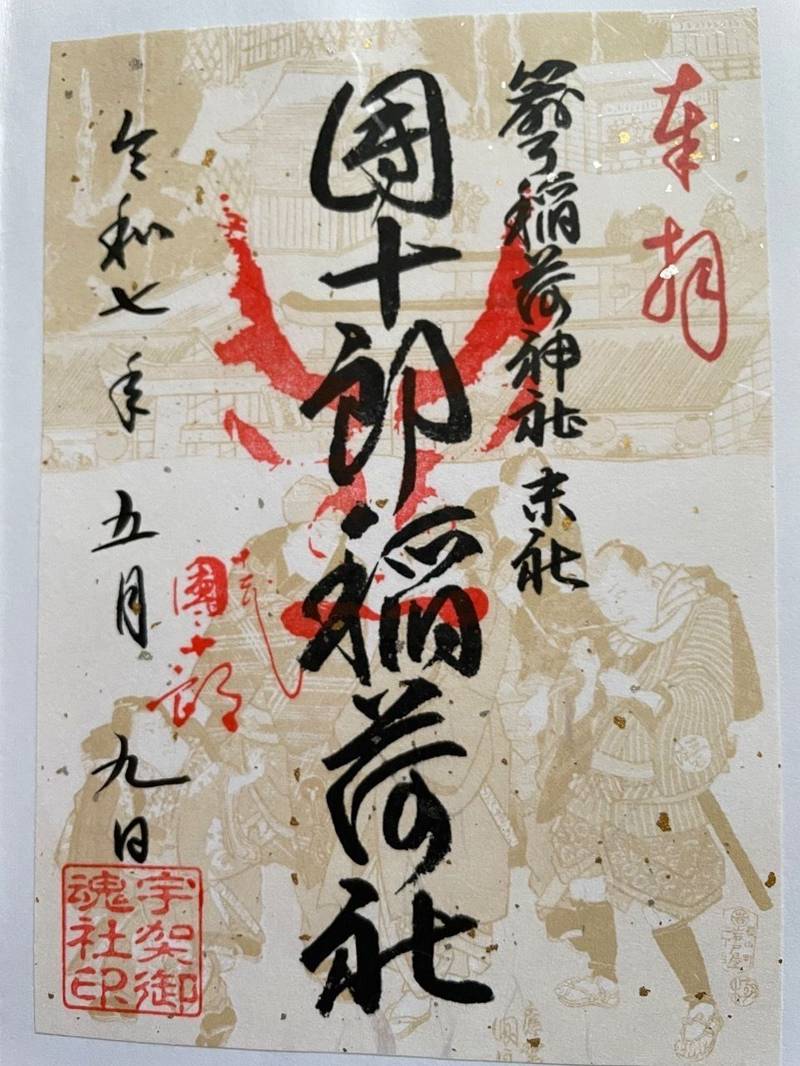 奉拝
箭弓稲荷神社 末社
團十郎稲荷社
十三代
團十郎
令和七年 五月 九日
宇架御
魂社印